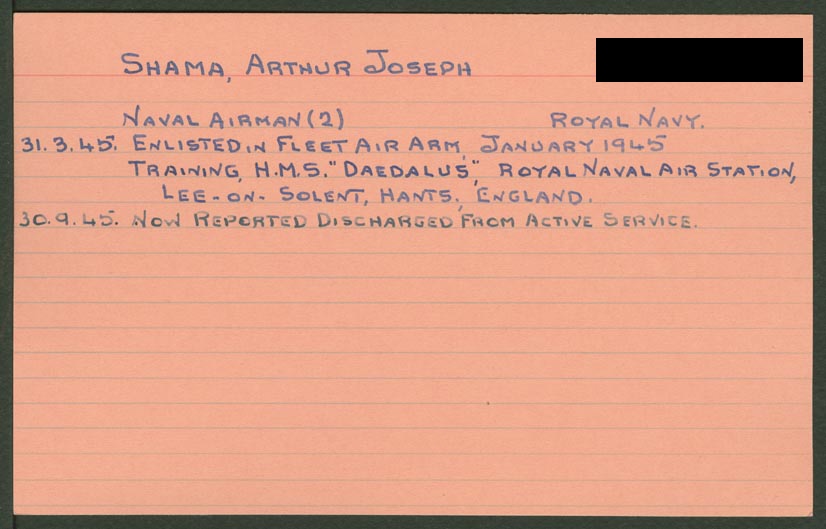 SHAMA, ARTHUR JOSEPH
NAVAL AIRMAN (2) ROYAL NAVY.
31.3.45. ENLISTED IN FLEET AIR ARM, JANUARY 1945
TRAINING, H.M.S. "DAEDALUS", ROYAL NAVAL AIR STATION,
LEE-ON-SOLENT, HANTS., ENGLAND.
30.9.45. NOW REPORTED DISCHARGED FROM ACTIVE SERVICE.